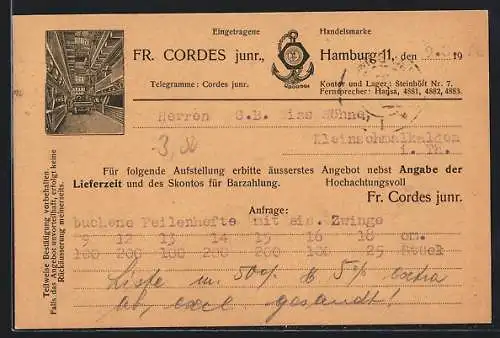 Eingetragene Handelsmarke
FR. CORDES junr., Hamburg 11, den
Telegramme: Cordes junr. Kontor und Lager: Steinhöft Nr. 7.
Fernsprecher: Hansa, 4881, 4882, 4883.
Herren C.B. Bias Söhne,
Kleinschmalkalden
i. Th.
Für folgende Aufstellung erbitte äusserstes Angebot nebst Angabe der
Lieferzeit und des Skontos für Barzahlung. Hochachtungsvoll
Fr. Cordes junr.
Anfrage:
buchene Feilenhefte mit eis. Zwinge
9 12 13 14 15 16 18 cm.
100 200 100 200 200 100 25 Stück
Liste m. 50% & 5% extra
gesandt!
Teilweise Bestätigung vorbehalten
Falls das Angebot unvorteilhaft, erfolgt keine
Rückäusserung meinerseits.